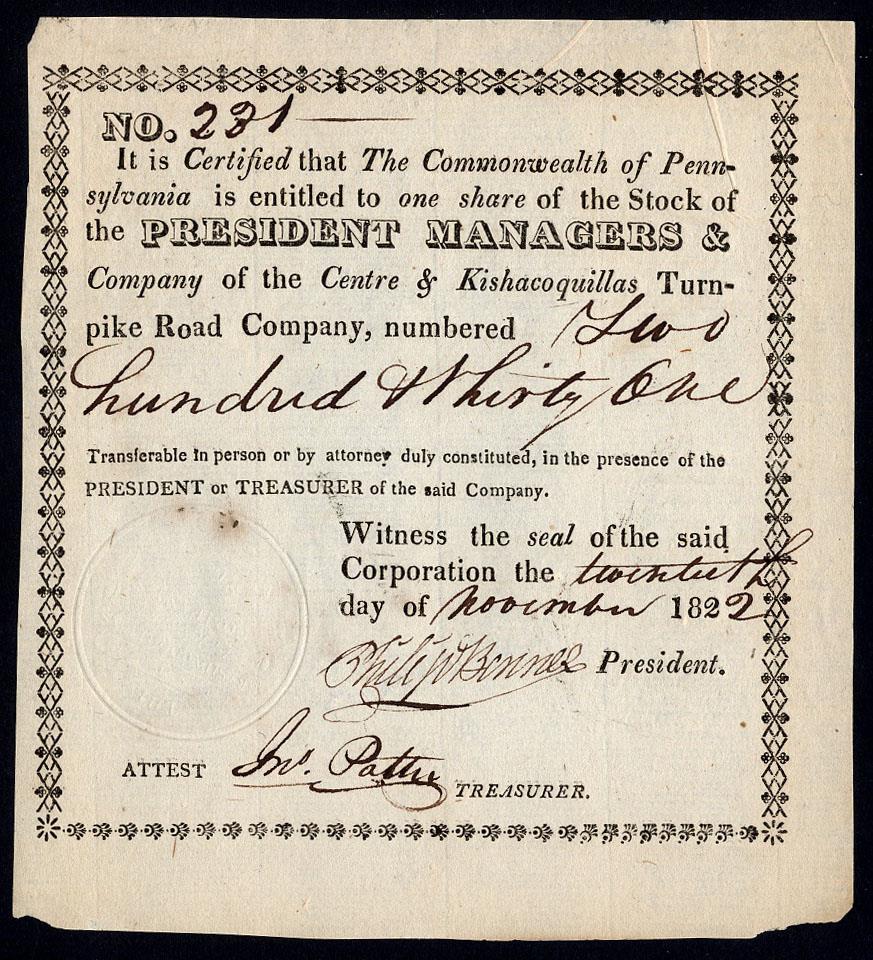 NO. 231
It is Certified that The Commonwealth of Penn-
sylvania is entitled to one share of the Stock of
the PRESIDENT MANAGERS &
Company of the Centre & Kishacoquillas Turn-
pike Road Company, numbered Two
hundred & Thirty One
Transferable in person or by attorney duly constituted, in the presence of the
PRESIDENT or TREASURER of the said Company.
Witness the seal of the said
Corporation the twentieth
day of November 1822
Philip Benner President.
ATTEST Jno. Potter TREASURER.